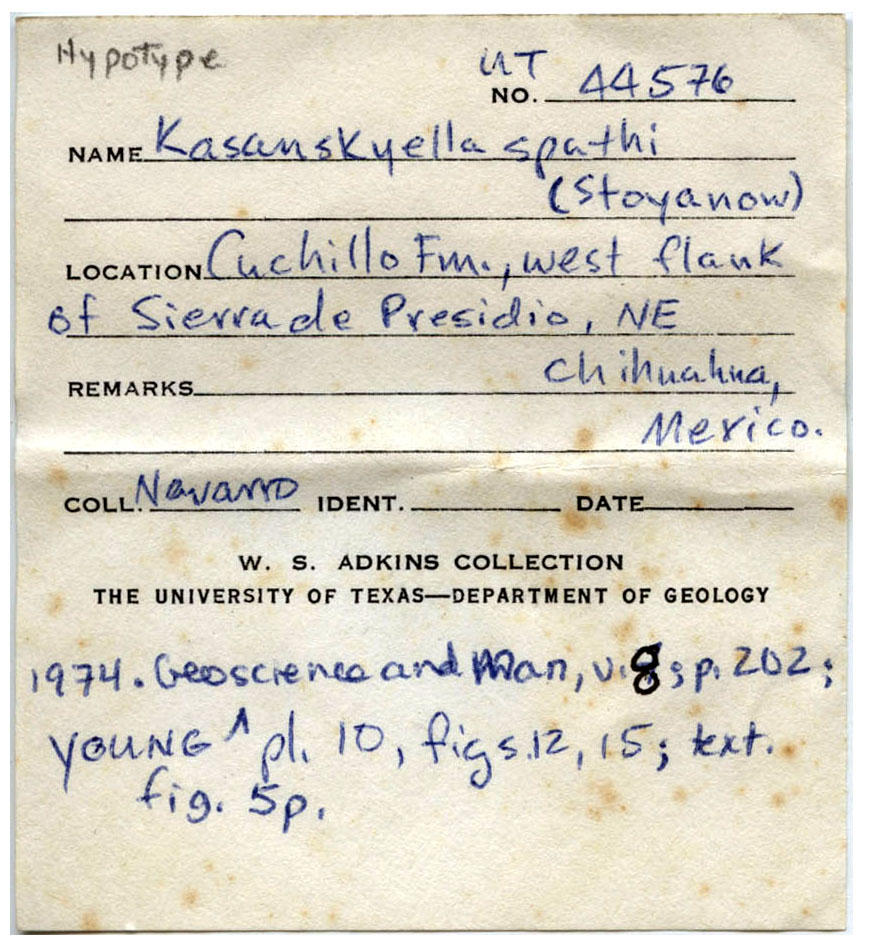 Hypotype
UT
NO. 44576
NAME Kasanskyella spathi
(Stoyanow)
LOCATION Cuchillo Fm., west flank
of Sierra de Presidio, NE
REMARKS Chihuahua,
Mexico.
COLL. Navarro IDENT. DATE
W. S. ADKINS COLLECTION
THE UNIVERSITY OF TEXAS—DEPARTMENT OF GEOLOGY
1974. Geoscience and Man, v. 8; p. 202;
YOUNG ^ pl. 10, figs. 12, 15; text.
fig. 5p.